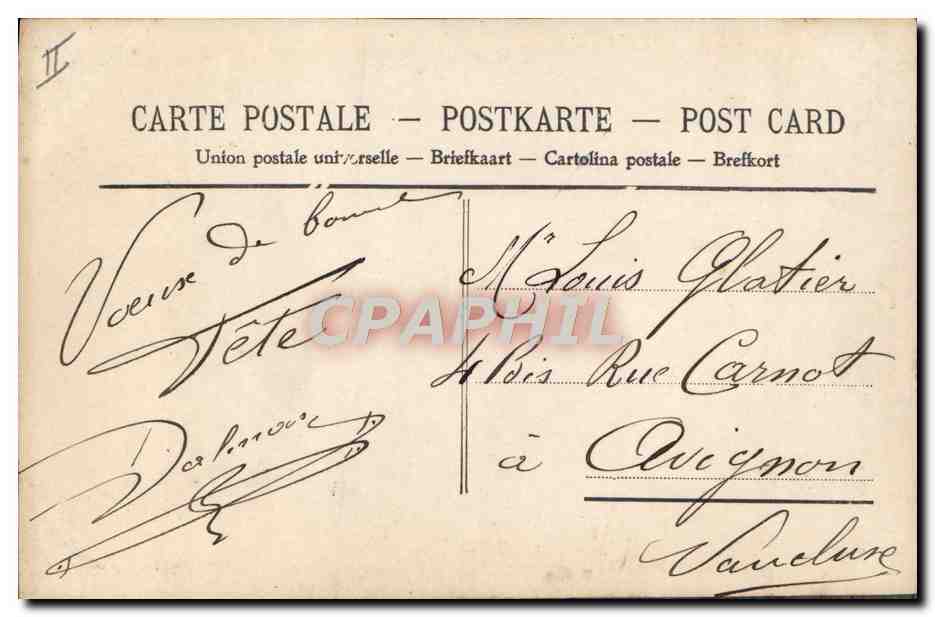 II
CARTE POSTALE — POSTKARTE — POST CARD
Union postale universelle — Briefkaart — Cartolina postale — Brefkort
Voeux de bonne
Fête
Mr Louis Glatier
4 Bis Rue Carnot
à Avignon
Vaucluse
CPAPHIL